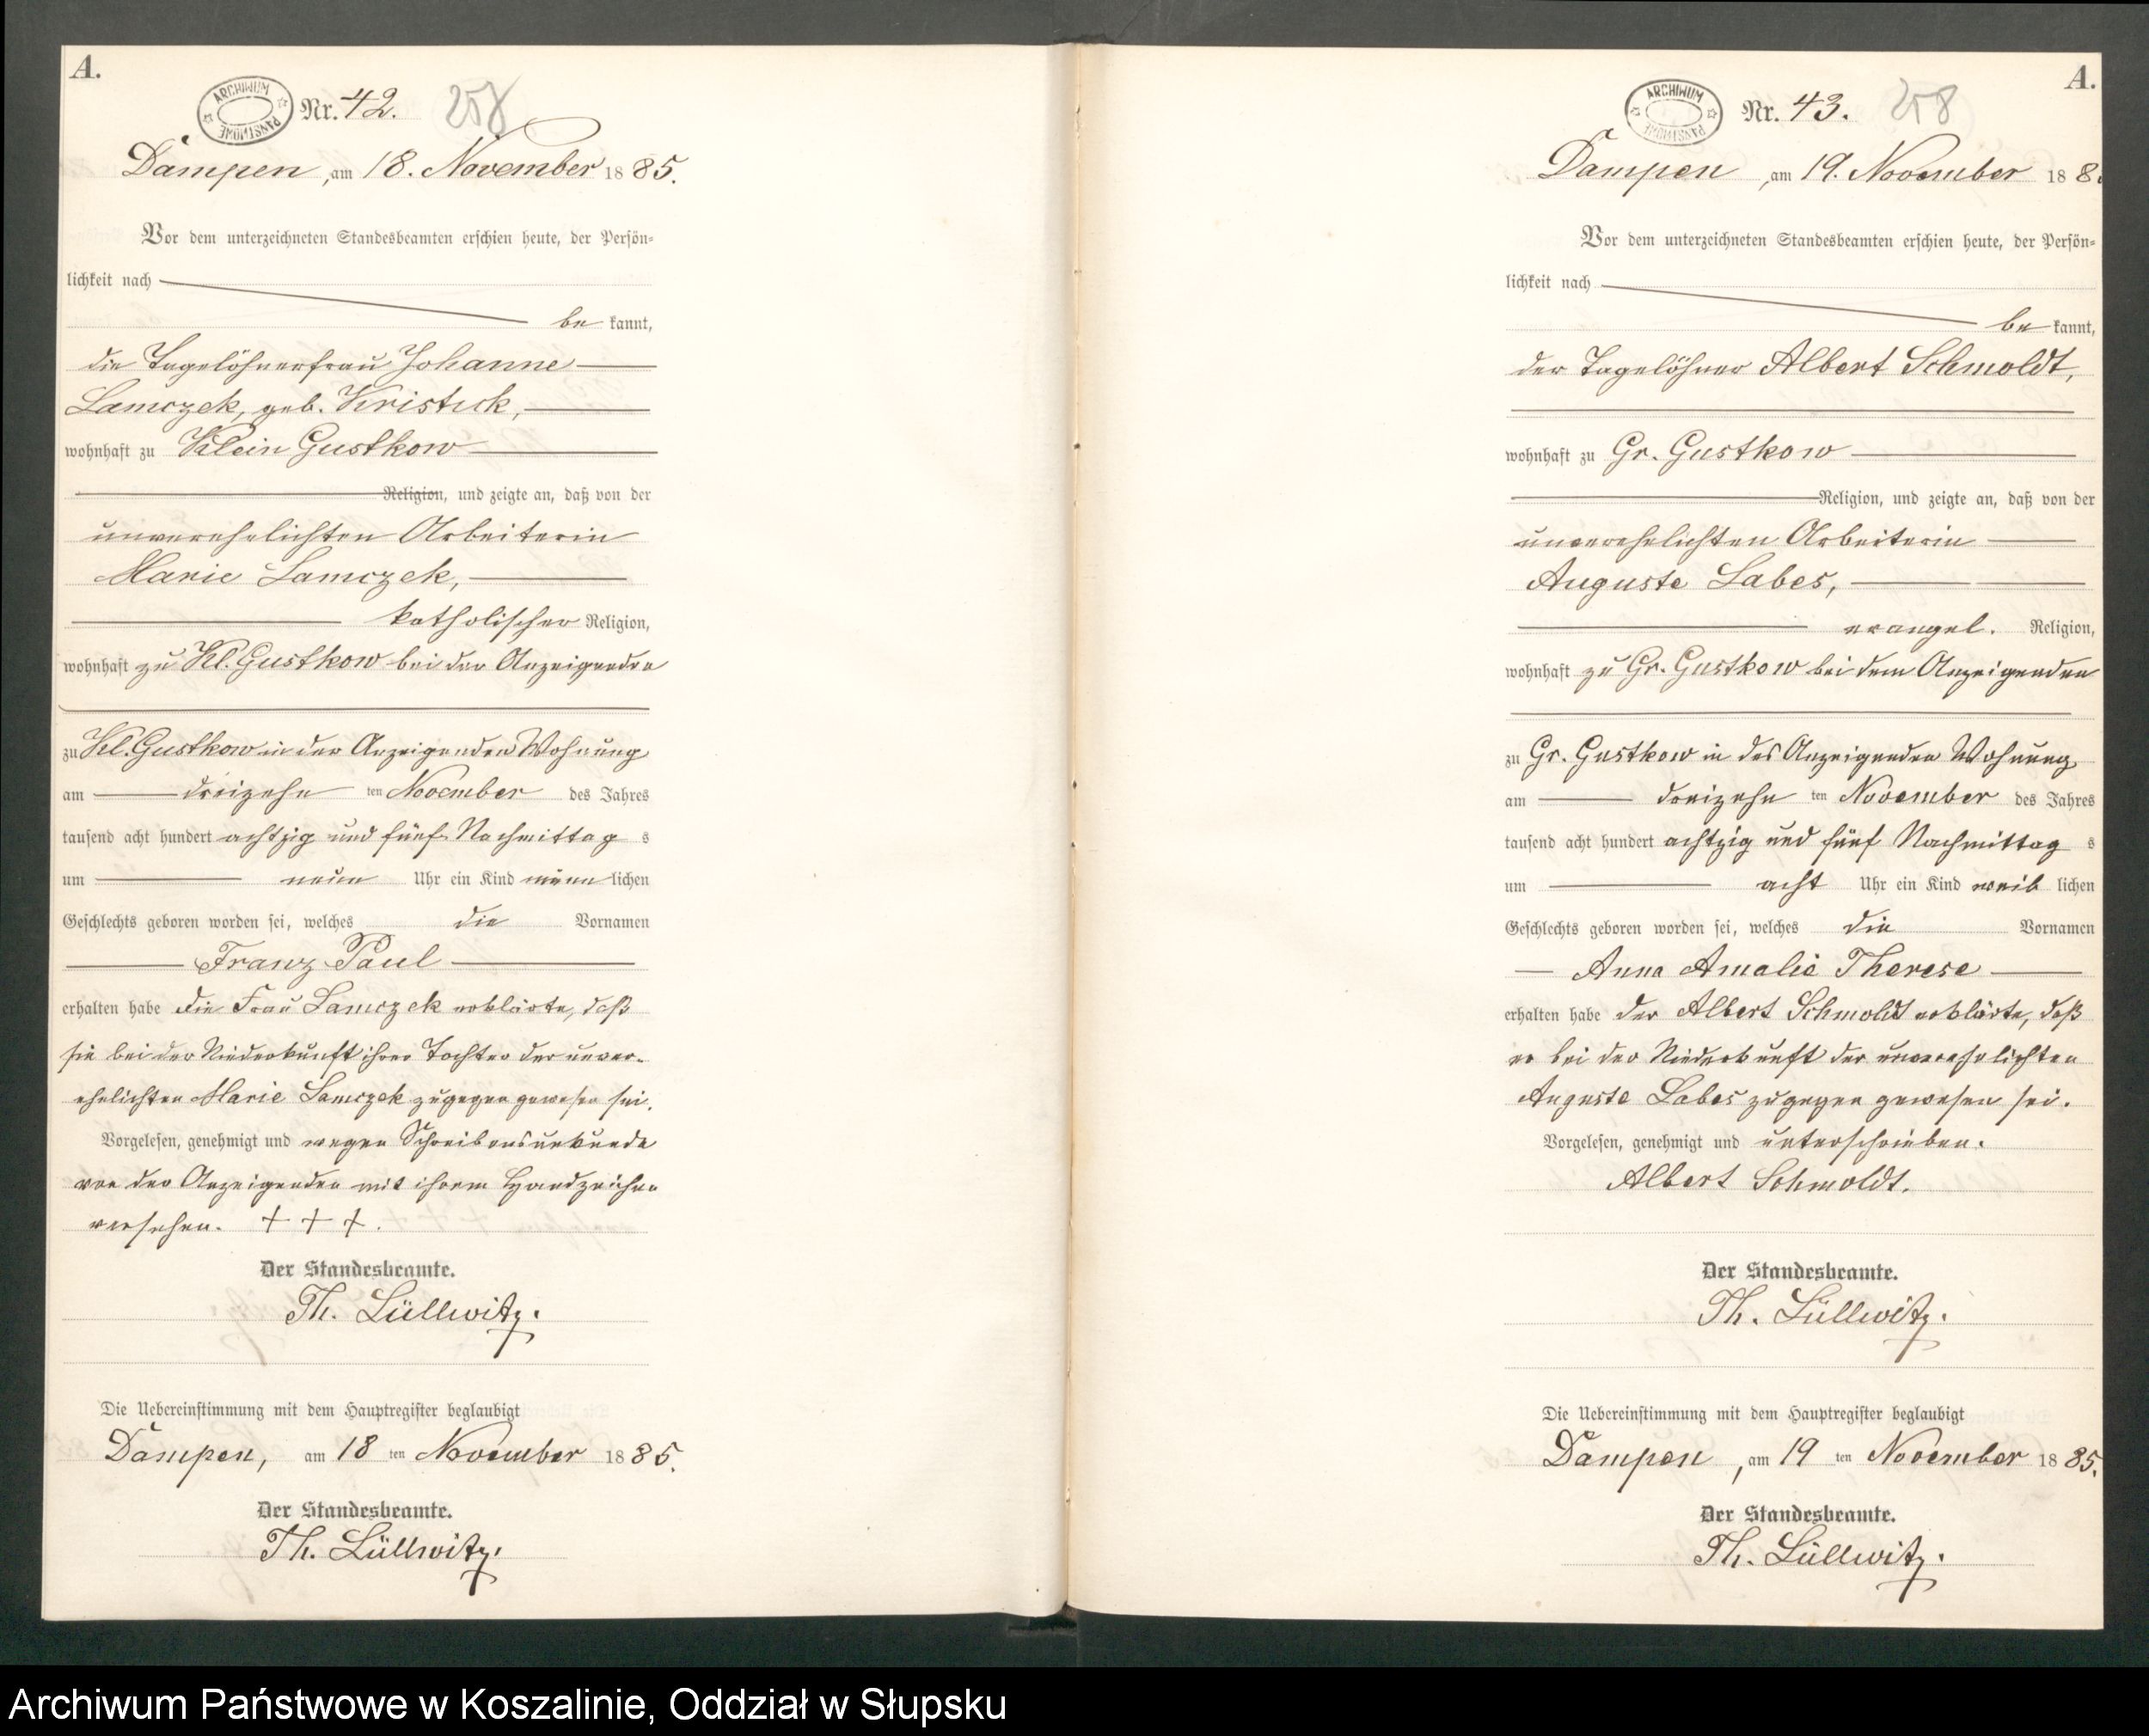 A.
ARCHIWUM PAŃSTWOWE
Nr. 42. 258
Dampen, am 18. November 1885.
Vor dem unterzeichneten Standesbeamten erschien heute, der Persön-
lichkeit nach
be kannt,
die Tagelöhnerfrau Johanne
Lamczek, geb. Kristick,
wohnhaft zu Klein Gustkow
Religion, und zeigte an, daß von der
unverehelichten Arbeiterin
Marie Lamczek,
katholischer Religion,
wohnhaft zu Kl. Gustkow bei der Anzeigenden
zu Kl. Gustkow in der Anzeigenden Wohnung
am dreizehn ten November des Jahres
tausend acht hundert achtzig und fünf Nachmittag s
um neun Uhr ein Kind männ lichen
Geschlechts geboren worden sei, welches die Vornamen
Franz Paul
erhalten habe die Frau Lamczek erklärte, daß
sie bei der Niederkunft ihrer Tochter der unver-
ehelichten Marie Lamczek zugegen gewesen sei.
Vorgelesen, genehmigt und wegen Schreibensunkunde
von der Anzeigenden mit ihrem Handzeichen
versehen. + + +.
Der Standesbeamte.
Th. Lüllwitz.
Die Uebereinstimmung mit dem Hauptregister beglaubigt
Dampen, am 18 ten November 1885.
Der Standesbeamte.
Th. Lüllwitz.
A.
ARCHIWUM PAŃSTWOWE
Nr. 43. 258
Dampen, am 19. November 188
Vor dem unterzeichneten Standesbeamten erschien heute, der Persön-
lichkeit nach
be kannt,
der Tagelöhner Albert Schmoldt,
wohnhaft zu Gr. Gustkow
Religion, und zeigte an, daß von der
unverehelichten Arbeiterin
Auguste Labes,
evangel. Religion,
wohnhaft zu Gr. Gustkow bei dem Anzeigenden
zu Gr. Gustkow in des Anzeigenden Wohnung
am dreizehn ten November des Jahres
tausend acht hundert achtzig und fünf Nachmittag s
um acht Uhr ein Kind weib lichen
Geschlechts geboren worden sei, welches die Vornamen
Anna Amalie Therese
erhalten habe der Albert Schmoldt erklärte, daß
er bei der Niederkunft der unverehelichten
Auguste Labes zugegen gewesen sei.
Vorgelesen, genehmigt und unterschrieben.
Albert Schmoldt.
Der Standesbeamte.
Th. Lüllwitz.
Die Uebereinstimmung mit dem Hauptregister beglaubigt
Dampen, am 19 ten November 1885.
Der Standesbeamte.
Th. Lüllwitz.
Archiwum Państwowe w Koszalinie, Oddział w Słupsku